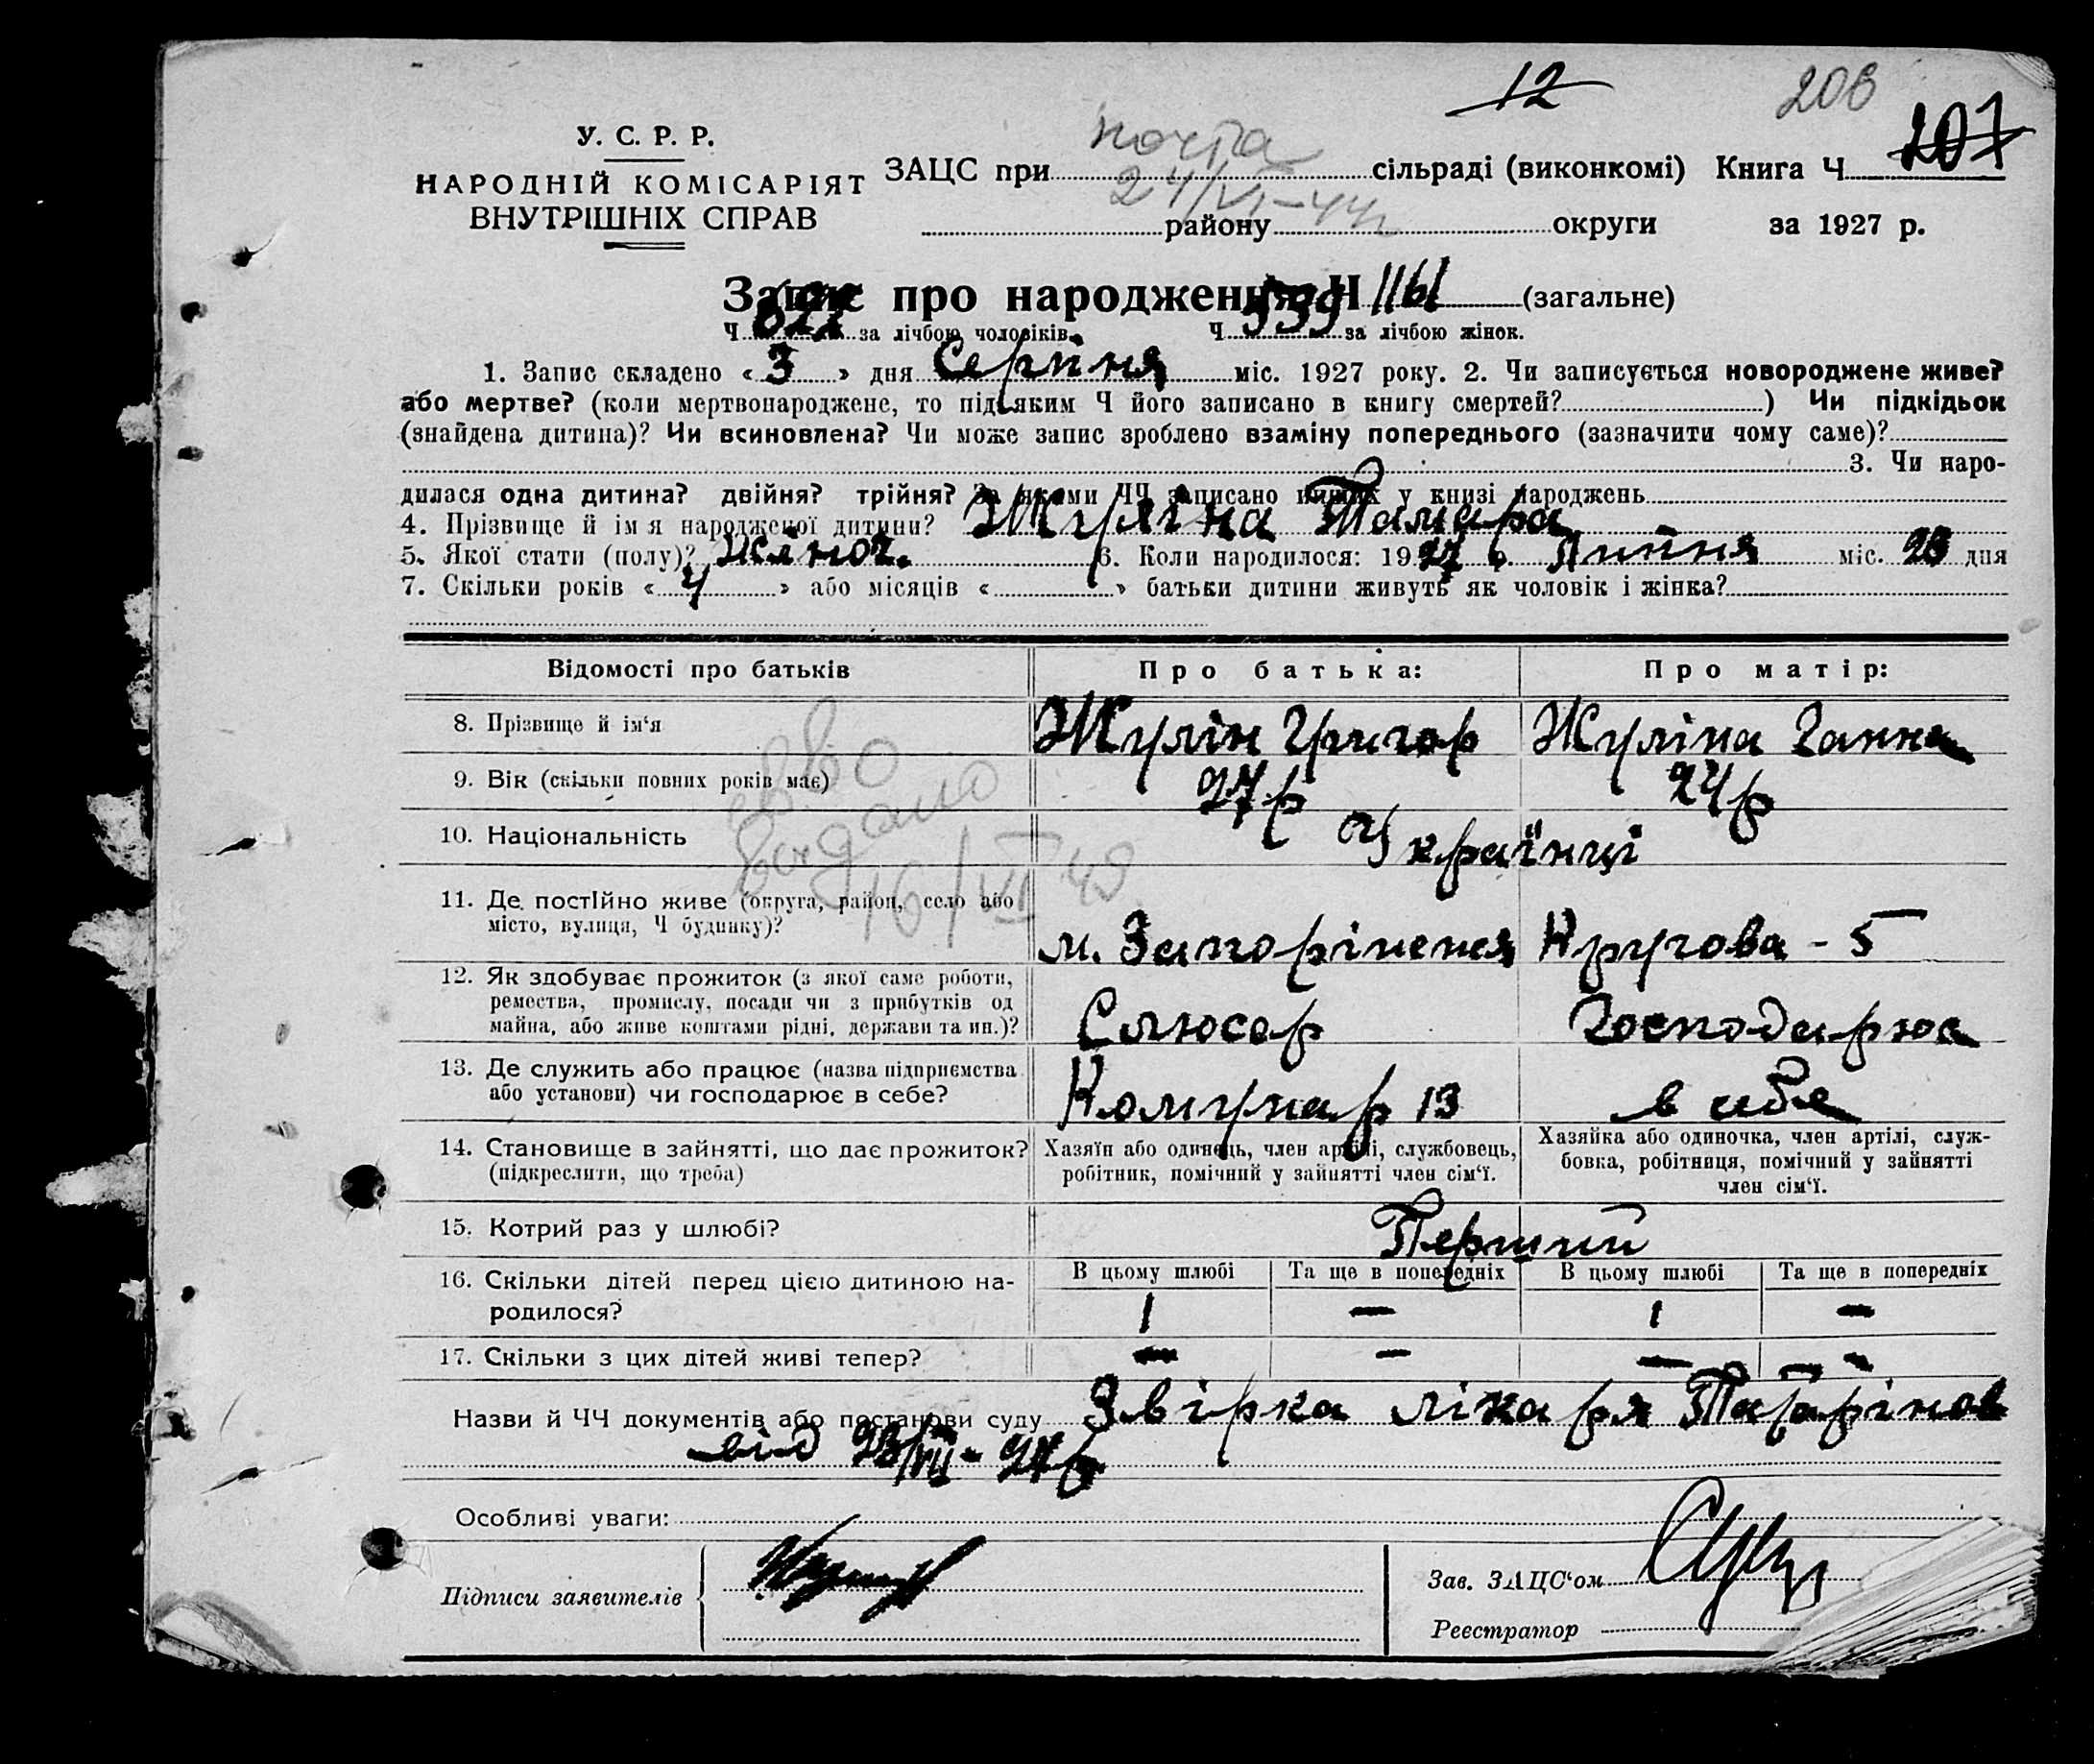 12
206
207
У. С. Р. Р.
НАРОДНІЙ КОМІСАРІЯТ
ВНУТРІШНІХ СПРАВ
почта
24/VI-44р
ЗАЦС при сільраді (виконкомі) Книга Ч
району округи за 1927 р.
Запис про народження Ч 1161 (загальне)
Ч 622 за лічбою чоловіків. Ч 539 за лічбою жінок.
1. Запис складено « 3 » дня Серпня міс. 1927 року. 2. Чи записується новороджене живе?
або мертве? (коли мертвонароджене, то під яким Ч його записано в книгу смертей? ) Чи підкідьок
(знайдена дитина)? Чи всиновлена? Чи може запис зроблено взаміну попереднього (зазначити чому саме)?
3. Чи наро-
дилася одна дитина? двійня? трійня? За якими ЧЧ записано инших у книзі народжень
4. Прізвище й ім'я народженої дитини? Журіна Тамара
5. Якої стати (полу)? жіноч. 6. Коли народилося: 1927 р. Липня міс. 23 дня
7. Скільки років « 4 » або місяців « » батьки дитини живуть як чоловік і жінка?
Відомості про батьків Про батька: Про матір:
8. Прізвище й ім'я Журін Григор Журіна Ганна
9. Вік (скільки повних років має) 27 р 24 р
10. Національність Українці
Видано
16/VI 49
11. Де постійно живе (округа, район, село або
місто, вулиця, Ч будинку)?
м. Запоріжжя Кругова - 5
12. Як здобуває прожиток (з якої саме роботи,
ремества, промислу, посади чи з прибутків од
майна, або живе коштами рідні, держави та ин.)?
Слюсар Господарює
13. Де служить або працює (назва підприємства
або установи) чи господарює в себе?
Комунар 13 в себе
14. Становище в зайнятті, що дає прожиток?
(підкреслити, що треба)
Хазяїн або одинець, член артілі, службовець,
робітник, помічний у зайнятті член сім'ї.
Хазяйка або одиночка, член артілі, служ-
бовка, робітниця, помічний у зайнятті
член сім'ї.
15. Котрий раз у шлюбі? Перший
16. Скільки дітей перед цією дитиною на-
родилося?
В цьому шлюбі Та ще в попередніх В цьому шлюбі Та ще в попередніх
1 — 1 —
17. Скільки з цих дітей живі тепер? — — — —
Назви й ЧЧ документів або постанови суду Звірка лікаря Татарінов
від 23/VII - 27р
Особливі уваги:
Підписи заявителів
Зав. ЗАЦС'ом
Реєстратор